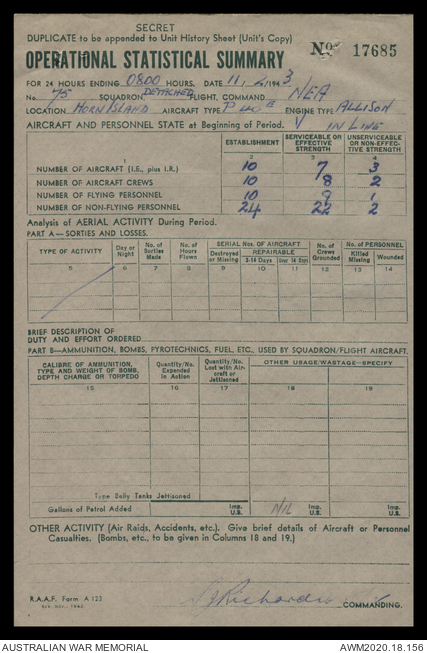 SECRET
DUPLICATE to be appended to Unit History Sheet (Unit's Copy)
OPERATIONAL STATISTICAL SUMMARY No. 17685
FOR 24 HOURS ENDING 0800 HOURS. DATE 11. 2. 1943
No. 75 SQUADRON, DETACHED FLIGHT, COMMAND NEA
LOCATION HORN ISLAND AIRCRAFT TYPE P40 E ENGINE TYPE ALLISON
AIRCRAFT AND PERSONNEL STATE at Beginning of Period. V IN LINE
ESTABLISHMENT SERVICEABLE OR EFFECTIVE STRENGTH UNSERVICEABLE OR NON-EFFECTIVE STRENGTH
1 2 3 4
NUMBER OF AIRCRAFT (I.E., plus I.R.) 10 7 3
NUMBER OF AIRCRAFT CREWS 10 8 2
NUMBER OF FLYING PERSONNEL 10 9 1
NUMBER OF NON-FLYING PERSONNEL 24 22 2
Analysis of AERIAL ACTIVITY During Period.
PART A—SORTIES AND LOSSES.
TYPE OF ACTIVITY Day or Night No. of Sorties Made No. of Hours Flown SERIAL Nos. OF AIRCRAFT Destroyed or Missing REPAIRABLE 3-14 Days Over 14 Days No. of Crews Grounded No. of PERSONNEL Killed Missing Wounded
5 6 7 8 9 10 11 12 13 14
BRIEF DESCRIPTION OF
DUTY AND EFFORT ORDERED
PART B—AMMUNITION, BOMBS, PYROTECHNICS, FUEL, ETC., USED BY SQUADRON/FLIGHT AIRCRAFT.
CALIBRE OF AMMUNITION, TYPE AND WEIGHT OF BOMB, DEPTH CHARGE OR TORPEDO Quantity/No. Expended in Action Quantity/No. Lost with Aircraft or Jettisoned OTHER USAGE/WASTAGE—SPECIFY
15 16 17 18 19
Type Belly Tanks Jettisoned
Gallons of Petrol Added Imp. U.S. NIL Imp. U.S.
OTHER ACTIVITY (Air Raids, Accidents, etc.). Give brief details of Aircraft or Personnel
Casualties. (Bombs, etc., to be given in Columns 18 and 19.)
R.A.A.F. Form A 123
COMMANDING.
AUSTRALIAN WAR MEMORIAL AWM2020.18.156